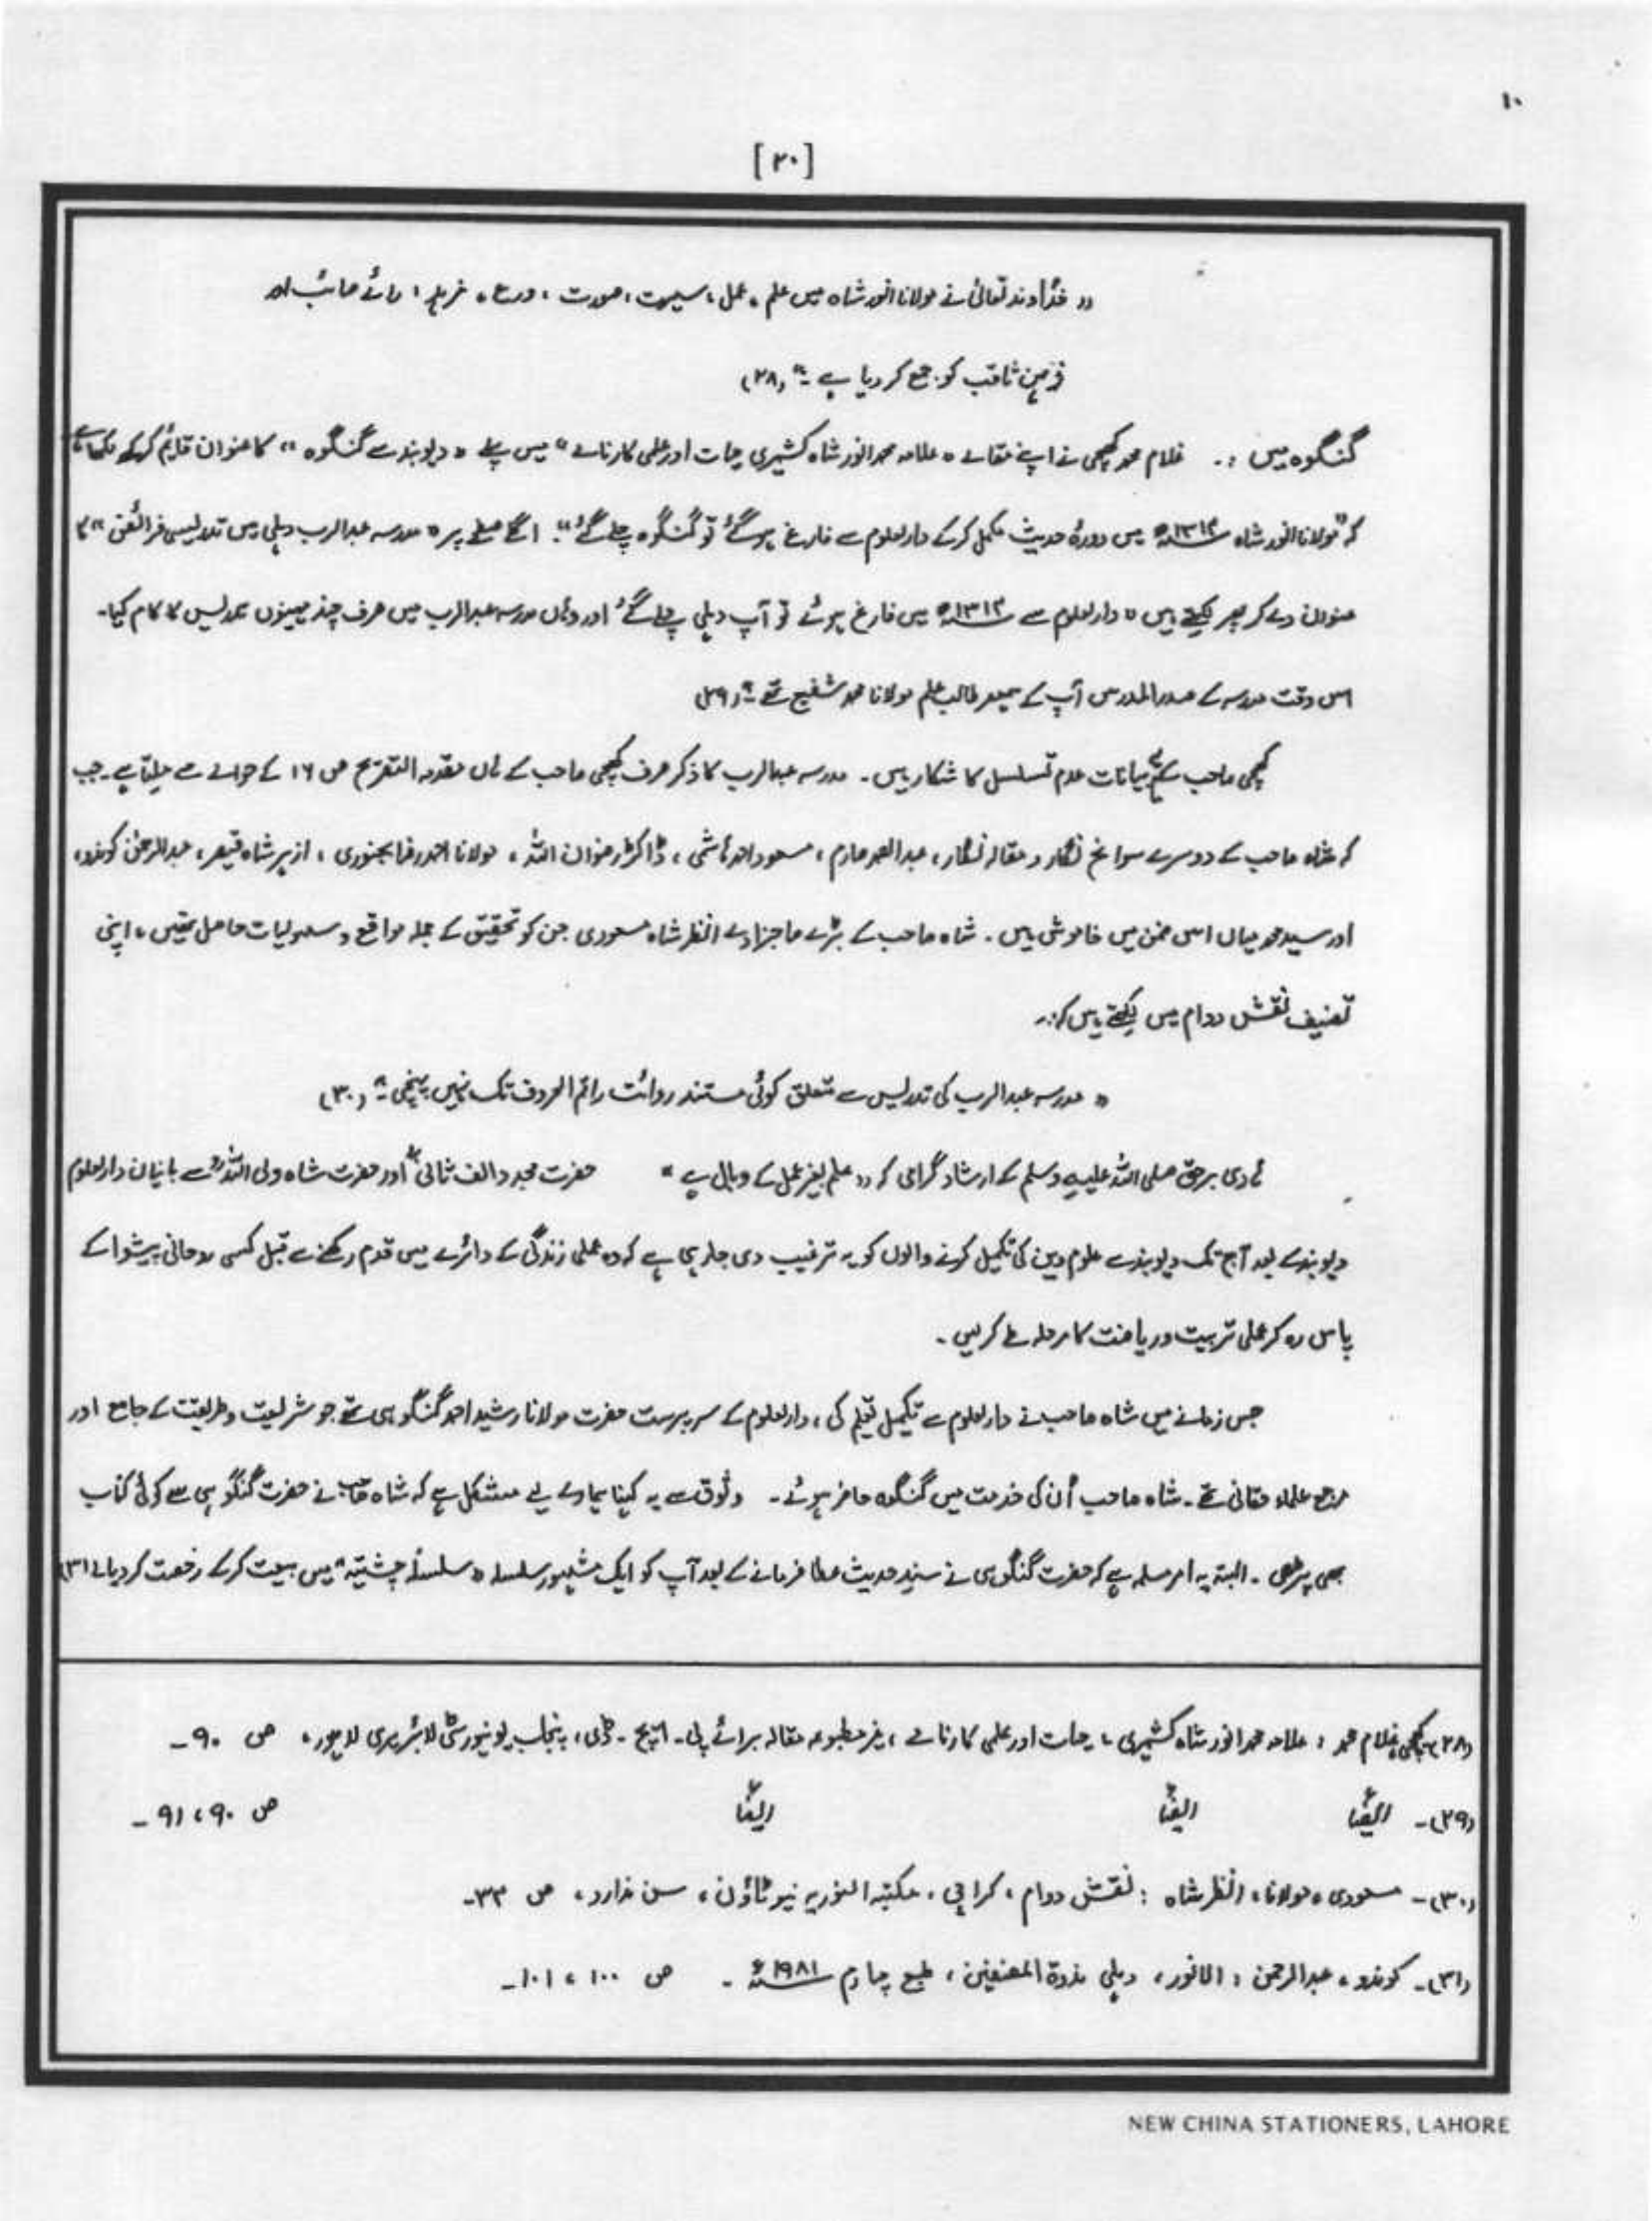 ۱۰
[۲۰]
" خداوند تعالیٰ نے مولانا انور شاہ میں علم، عمل، سیرت، صورت، ورع، زہد، رائے صائب اور
ذہن ثاقب کو جمع کر دیا ہے۔" (۲۸)
گنگوہ میں :۔ غلام محمد کچھی نے اپنے مقالے "علامہ محمد انور شاہ کشمیری حیات اور علمی کارنامے" میں پہلے "دیوبند سے گنگوہ" کا عنوان قائم کرکے لکھا ہے
کہ "مولانا انور شاہ ۱۳۱۲ھ میں دورۂ حدیث مکمل کرکے دارالعلوم سے فارغ ہو گئے تو گنگوہ چلے گئے"۔ اگلے صفحے پر "مدرسہ عبدالرب دہلی میں تدریسی فرائض" کا
عنوان دے کر پھر لکھتے ہیں "دارالعلوم سے ۱۳۱۲ھ میں فارغ ہوئے تو آپ دہلی چلے گئے اور وہاں مدرسہ عبدالرب میں صرف چند مہینوں تدریس کا کام کیا۔
اس وقت مدرسہ کے صدر المدرس آپ کے ہمعصر طالب علم مولانا محمد شفیع تھے۔" (۲۹)
کچھی صاحب کے یہ بیانات عدم تسلسل کا شکار ہیں۔ مدرسہ عبدالرب کا ذکر صرف کچھی صاحب کے ہاں مقدمہ التصریح ص ۱۶ کے حوالے سے ملتا ہے۔ جب
کہ شاہ صاحب کے دوسرے سوانح نگار و مقالہ نگار، عبدالصمد صارم، مسعود احمد ہاشمی، ڈاکٹر رضوان اللہ، مولانا احمد رضا بجنوری، ازہر شاہ قیصر، عبدالرحمٰن کوندو،
اور سید محمد میاں اس ضمن میں خاموش ہیں۔ شاہ صاحب کے بڑے صاحبزادے انظر شاہ مسعودی جن کو تحقیق کے جملہ مواقع و سہولیات حاصل تھیں، اپنی
تصنیف نقش دوام میں لکھتے ہیں کہ:۔
" مدرسہ عبدالرب کی تدریس سے متعلق کوئی مستند روائت راقم الحروف تک نہیں پہنچی۔" (۳۰)
ہادی برحق صلی اللہ علیہ وسلم کے ارشاد گرامی کہ "علم بغیر عمل کے وبال ہے" حضرت مجدد الف ثانیؒ اور حضرت شاہ ولی اللہؒ سے بانیان دارالعلوم
دیوبند کے بعد آج تک دیوبند سے علوم دین کی تکمیل کرنے والوں کو یہ ترغیب دی جا رہی ہے کہ وہ عملی زندگی کے دائرے میں قدم رکھنے سے قبل کسی روحانی پیشوا کے
پاس رہ کر عملی تربیت و ریاضت کا مرحلہ طے کر لیں۔
جس زمانے میں شاہ صاحب نے دارالعلوم سے تکمیل تعلیم کی، دارالعلوم کے سرپرست حضرت مولانا رشید احمد گنگوہی تھے جو شریعت و طریقت کے جامع اور
مرجع علماء حقانی تھے۔ شاہ صاحب اُن کی خدمت میں گنگوہ حاضر ہوئے۔ وثوق سے یہ کہنا ہمارے لیے مشکل ہے کہ شاہ صاحب نے حضرت گنگوہی سے کوئی کتاب
بھی پڑھی۔ البتہ یہ امر مسلمہ ہے کہ حضرت گنگوہی نے سندِ حدیث عطا فرمانے کے بعد آپ کو ایک مشہور سلسلہ "سلسلہ چشتیہ" میں بیعت کرکے رخصت کر دیا۔ (۳۱)
(۲۸)۔ کچھی، غلام محمد : علامہ محمد انور شاہ کشمیری، حیات اور علمی کارنامے، غیر مطبوعہ مقالہ برائے پی۔ ایچ۔ ڈی، پنجاب یونیورسٹی لائبریری لاہور، ص ۹۰۔
(۲۹)۔ ایضًا ایضًا ایضًا ص ۹۰، ۹۱۔
(۳۰)۔ مسعودی، مولانا، انظر شاہ : نقش دوام، کراچی، مکتبہ النوریہ نیو ٹاؤن، سن ندارد، ص ۳۳۔
(۳۱)۔ کوندو، عبدالرحمن : الانور، دہلی ندوۃ المصنفین، طبع چہارم ۱۹۸۱ء۔ ص ۱۰۰، ۱۰۱۔
NEW CHINA STATIONERS, LAHORE